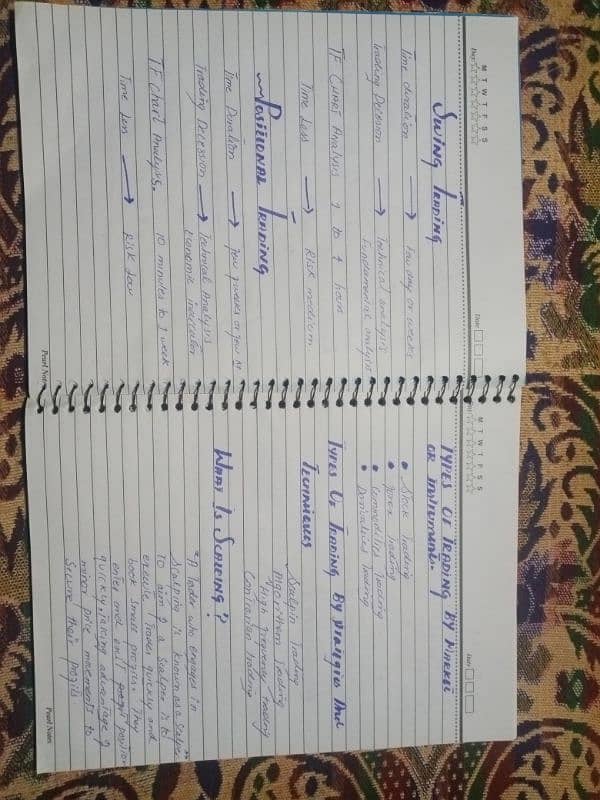 M T W T F S S
Date
SWING TRADING
Time duration → Few day or weeks
Trading Decession → Technical analysis
Fundamental analysis
TF CHART Analysis 1 to 4 hour
Time Less → Risk medium.
POSITIONAL TRADING
Time Duration → few weeks or few
Trading Decession → Technical Analysis
Economic indicator
TF Chart Analysis. 10 minutes to 1 week
Time Less → Risk Low
Pearl Notes
M T W T F S S
Date
TYPES OF TRADING BY MARKET
OR INSTRUMENT.
• Stock Trading
• forex Trading
• Commodities Trading
• Derivatives Trading
TYPES OF TRADING BY STRATEGIES AND
TECHNIQUES
Scalpin Trading
Algorithem Trading
High frequency Trading
Contrarian Trading
WHAT IS SCALPING?
"A Trader who engages in
Scalping is known as a Scalper"
TO aim of a Scalper is to
execute Trades quickly and
book small profits. They
enter and exit position
quickly, Taking advantage of
minor price movements to
Secure their profits
Pearl Notes